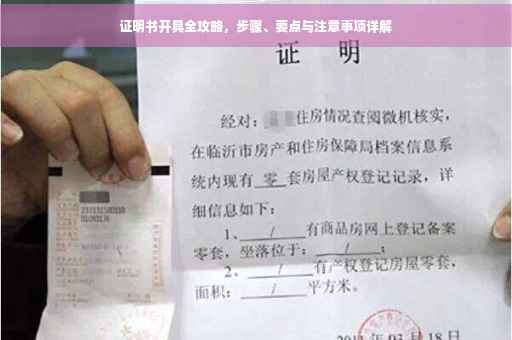 证明书开具全攻略，步骤、要点与注意事项详解
证 明
经对：住房情况查阅微机核实，
在临沂市房产和住房保障局档案信息系
统内现有 零 套房屋产权登记记录，详
细信息如下：
1、 / 有商品房网上登记备案
零套，坐落位于： / ；
2、 / 有产权登记房屋零套，
面积： / 平方米。
03月18日